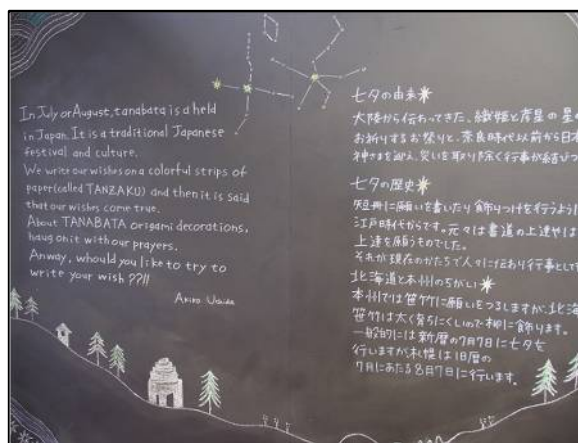 In July or August, tanabata is a held
in Japan. It is a traditional Japanese
festival and culture.
We write our wishes on a colorful strips of
paper(called TANZAKU) and then it is said
that our wishes come true.
About TANABATA origami decorations,
haug on it with our prayers.
Anway, whould you like to try to
write your wish ??!!
Akiko
七夕の由来
大陸から伝わってきた、織姫と彦星の星の
お祈りするお祭りと、奈良時代以前から日本
神さまを迎え、災いを取り除く行事が結びつ
七夕の歴史
短冊に願いを書いたり飾りつけを行うように
江戸時代からです。元々は書道の上達やは
上達を願うものでした。
それが現在のかたちで人々に伝わり行事として
北海道と本州のちがい
本州では笹竹に願いをつるしますが、北海
笹竹は太く育ちにくいので柳に飾ります。
一般的には新暦の7月7日に七夕を
行いますが札幌は旧暦の
7月にあたる8月7日に行います。